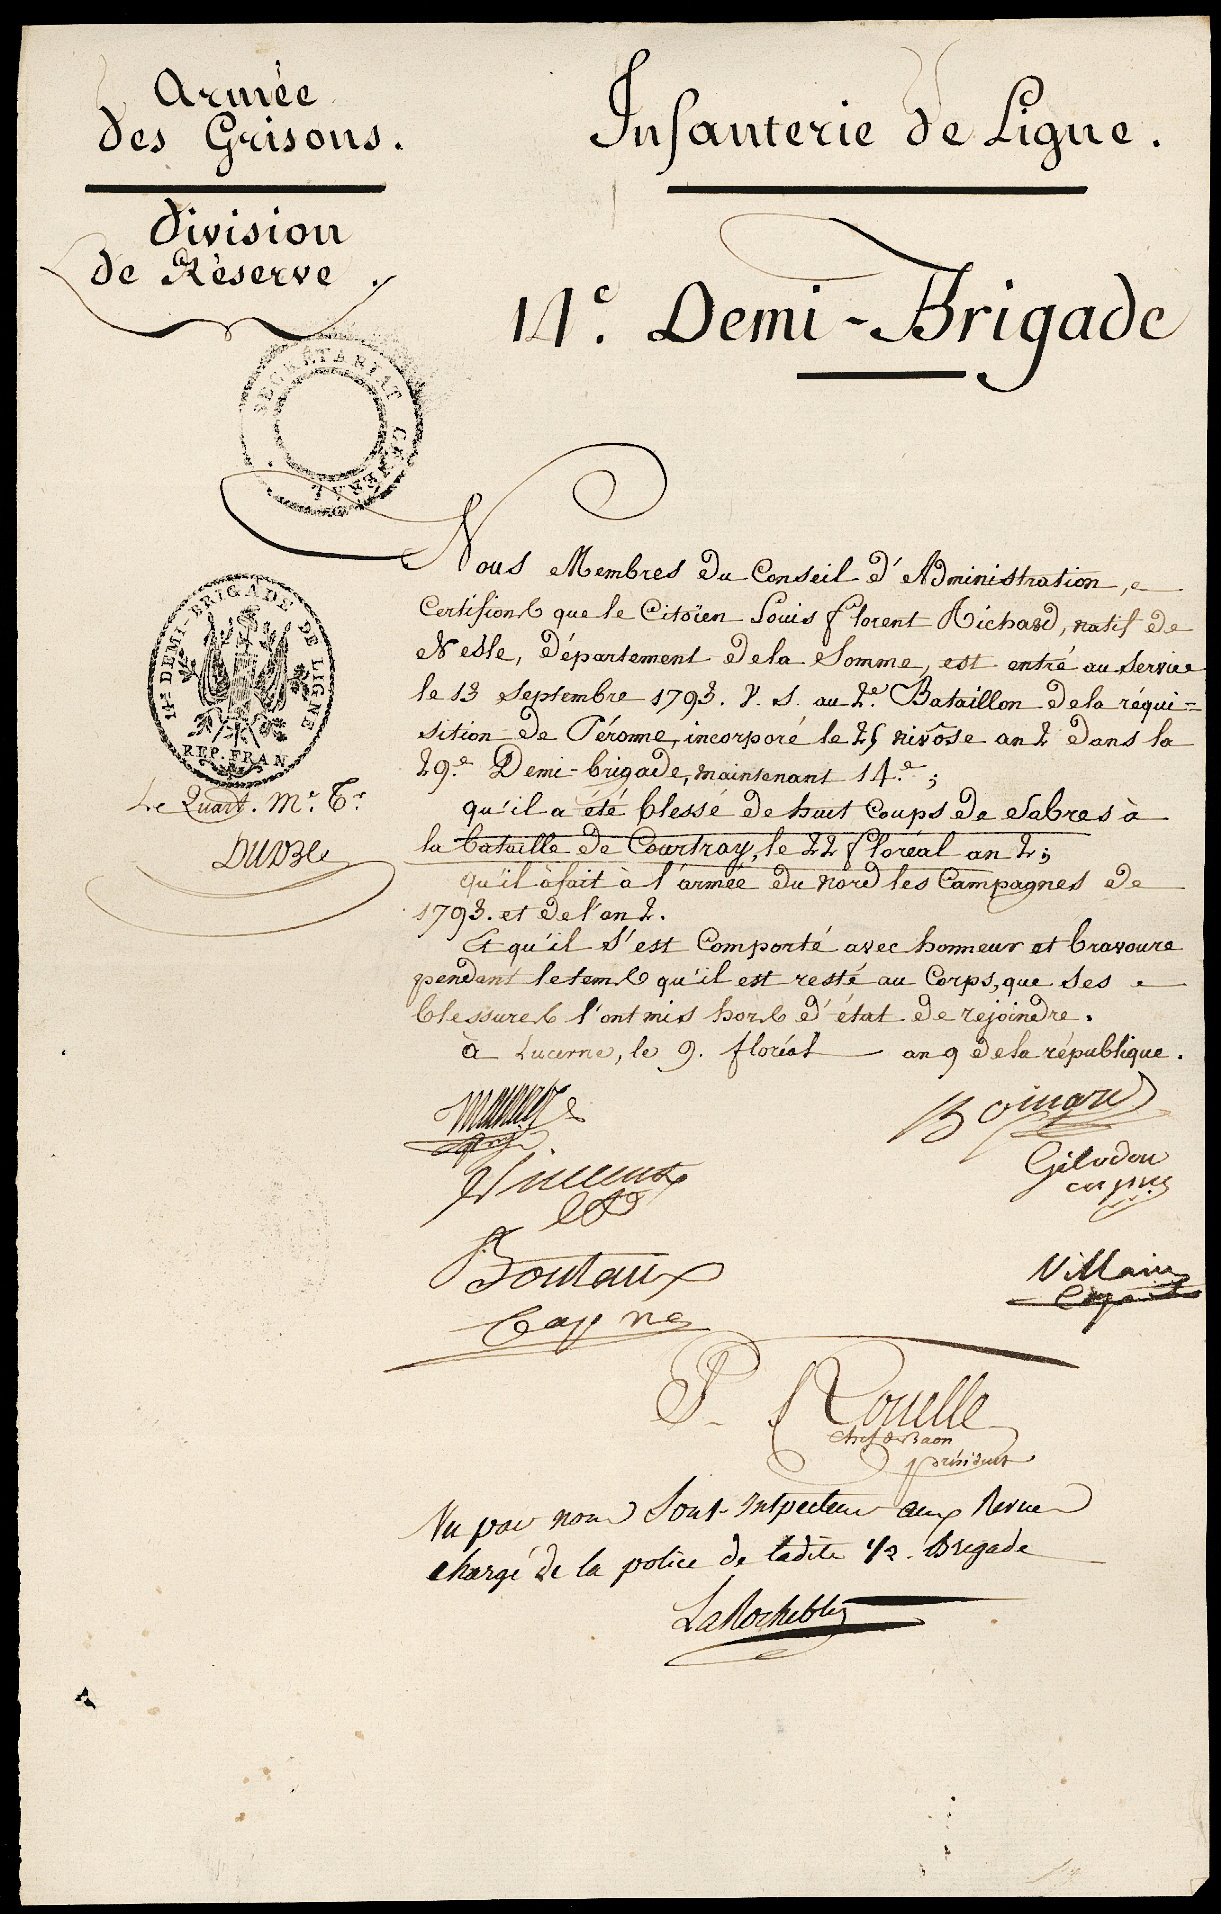 Armée
des Grisons.
Division
de Réserve.
Infanterie de Ligne.
14e. Demi-Brigade
SECRÉTARIAT GÉNÉRAL
14me DEMI-BRIGADE DE LIGNE
REP. FRAN
Le Quart. Me. Tr.
Nous Membres du Conseil d'Administration,
Certifions que le Citoïen Louis florent Richard, natif de
Nesle, département de la Somme, est entré au service
le 13 Septembre 1793. V. S. au 2e. Bataillon de la réqui=
sition de Péronne, incorporé le 25 nivôse an 2 dans la
29.e Demi-brigade, maintenant 14.e;
qu'il a été blessé de huit Coups de Sabres à
la bataille de Courtray, le 22 floréal an 2;
qu'il à fait à l'armée du nord les Campagnes de
1793. et de l'an 2.
Et qu'il s'est Comporté avec honneur et bravoure
pendant le tems qu'il est resté au Corps, que ses
blessures l'ont mis hors d'état de rejoindre.
à Lucerne, le 9. floréal an 9 de la république.
Boinard
Vincent
Gilodon
Boutaux
Capne
Villain
P. Rouelle
chef de Baon
président
Vu par nous Sous-Inspecteur aux Revues
chargé de la police de ladite 1/2. Brigade